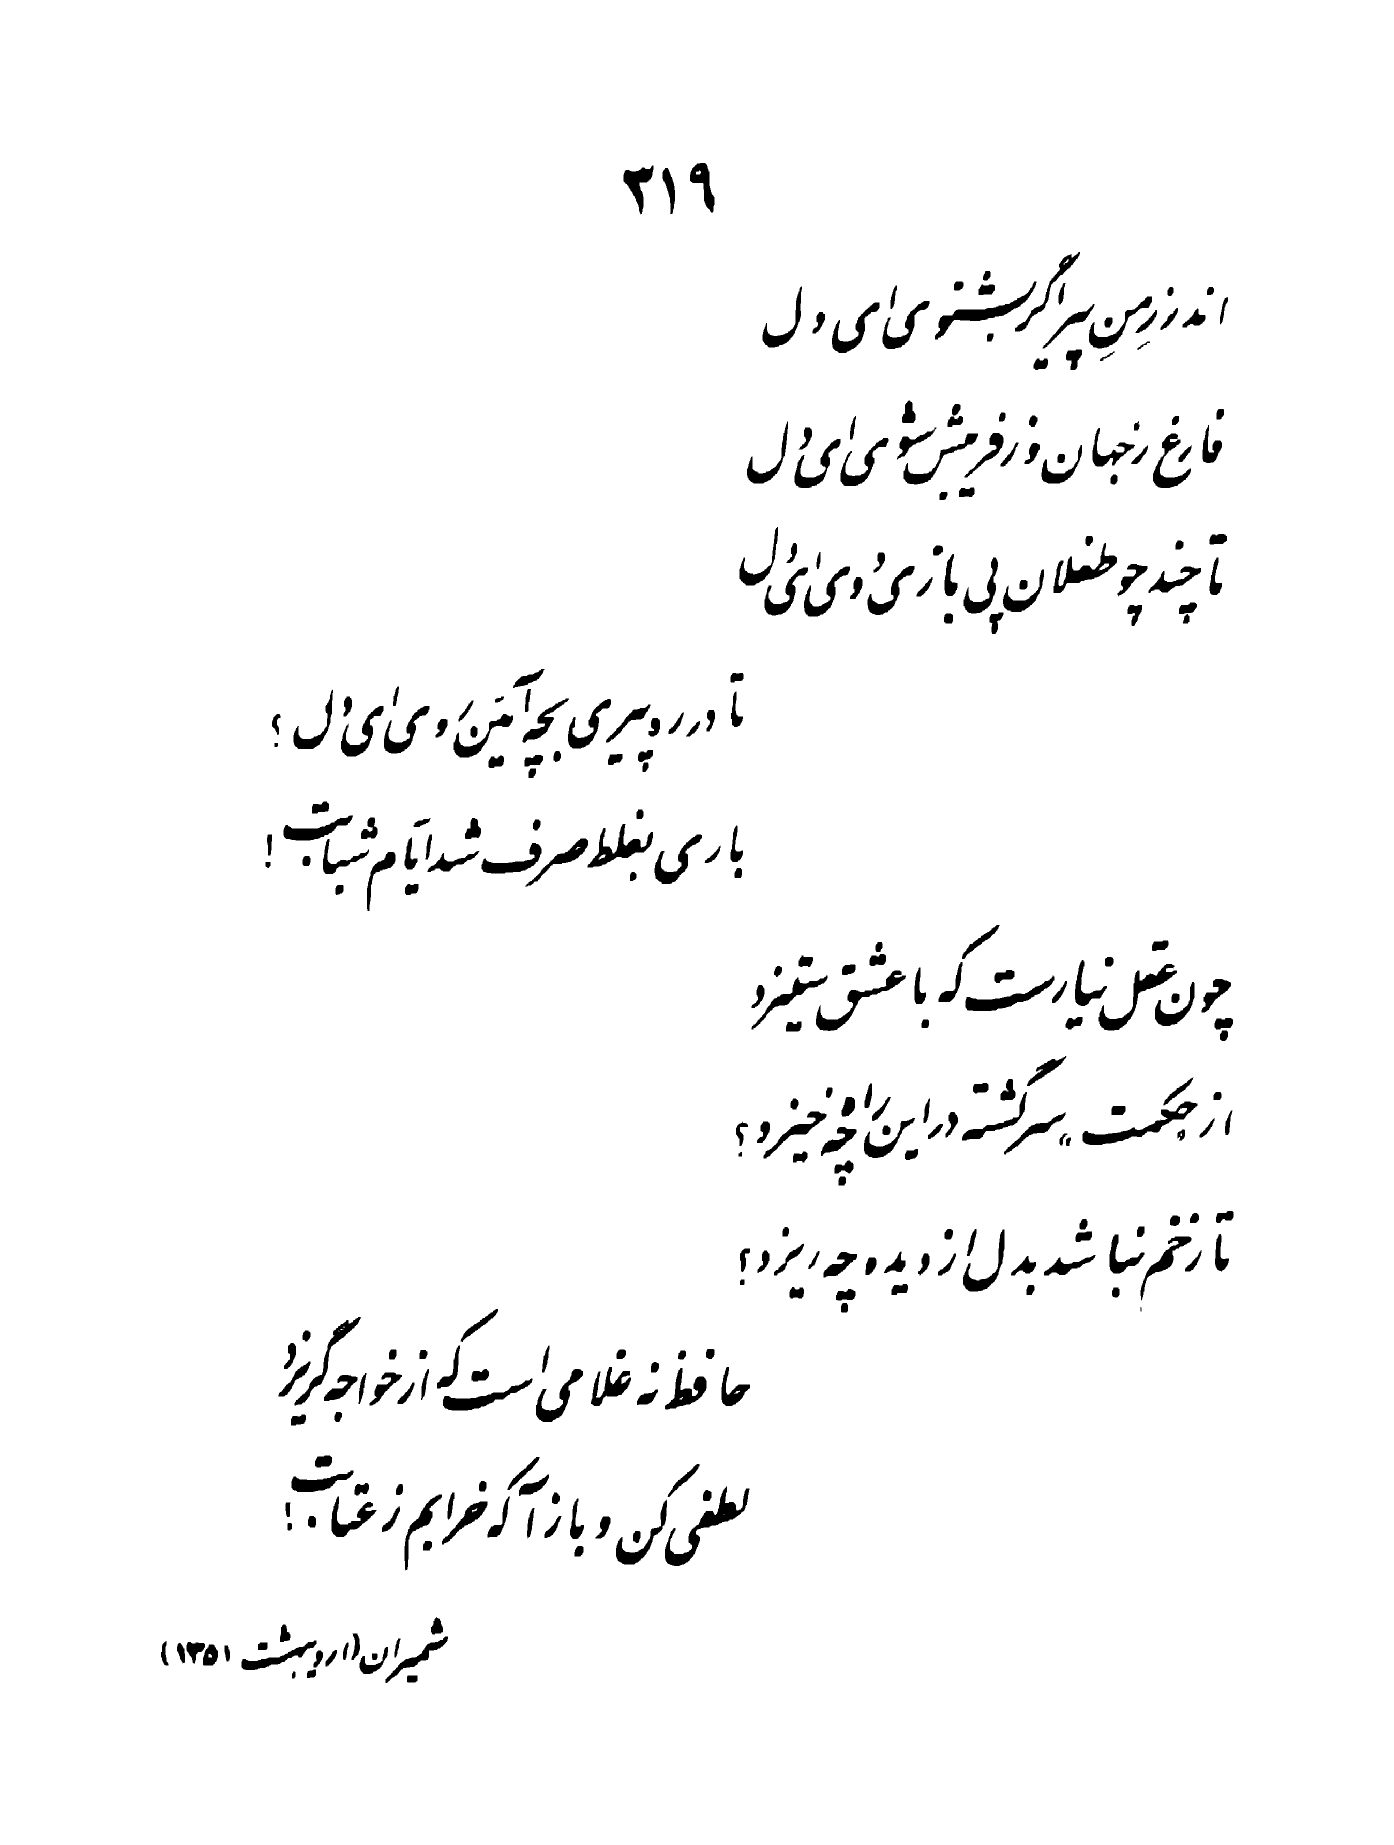 ۳۱۹
اندرزِ منِ پیر اگر بشنوی ای دل
فارغ ز جهان وز فر میشش شوی ای دل
تا چند چو طفلان پی بازی دوی ای دل
تا در ره پیری بچه آئین روی ای دل ؟
باری بغلط صرف شد ایّام شبابت !
چون عقل نیارست که با عشق ستیزد
از حکمت سرگشته در این راه چه خیزد ؟
تا زخم نباشد بدل از دیده چه ریزد ؟
حافظ نه غلامی است که از خواجه گریزد
لطفی کن و بازآ که خرابم ز عتابت !
شمیران (اردیبهشت ۱۳۵۱)